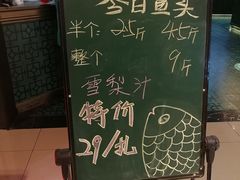 今日鱼头
半个: 25斤 45斤
整个 9斤
雪梨汁
特价
29/扎